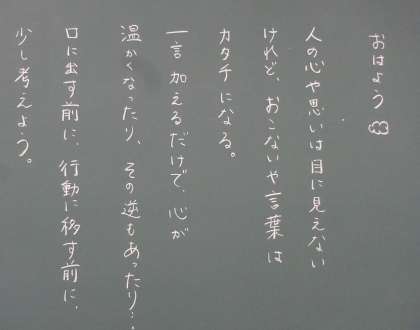 おはよう
人の心や思いは目に見えない
けれど、おこないや言葉は
カタチになる。
一言加えるだけで、心が
温かくなったり、その逆もあったり…。
口に出す前に、行動に移す前に、
少し考えよう。